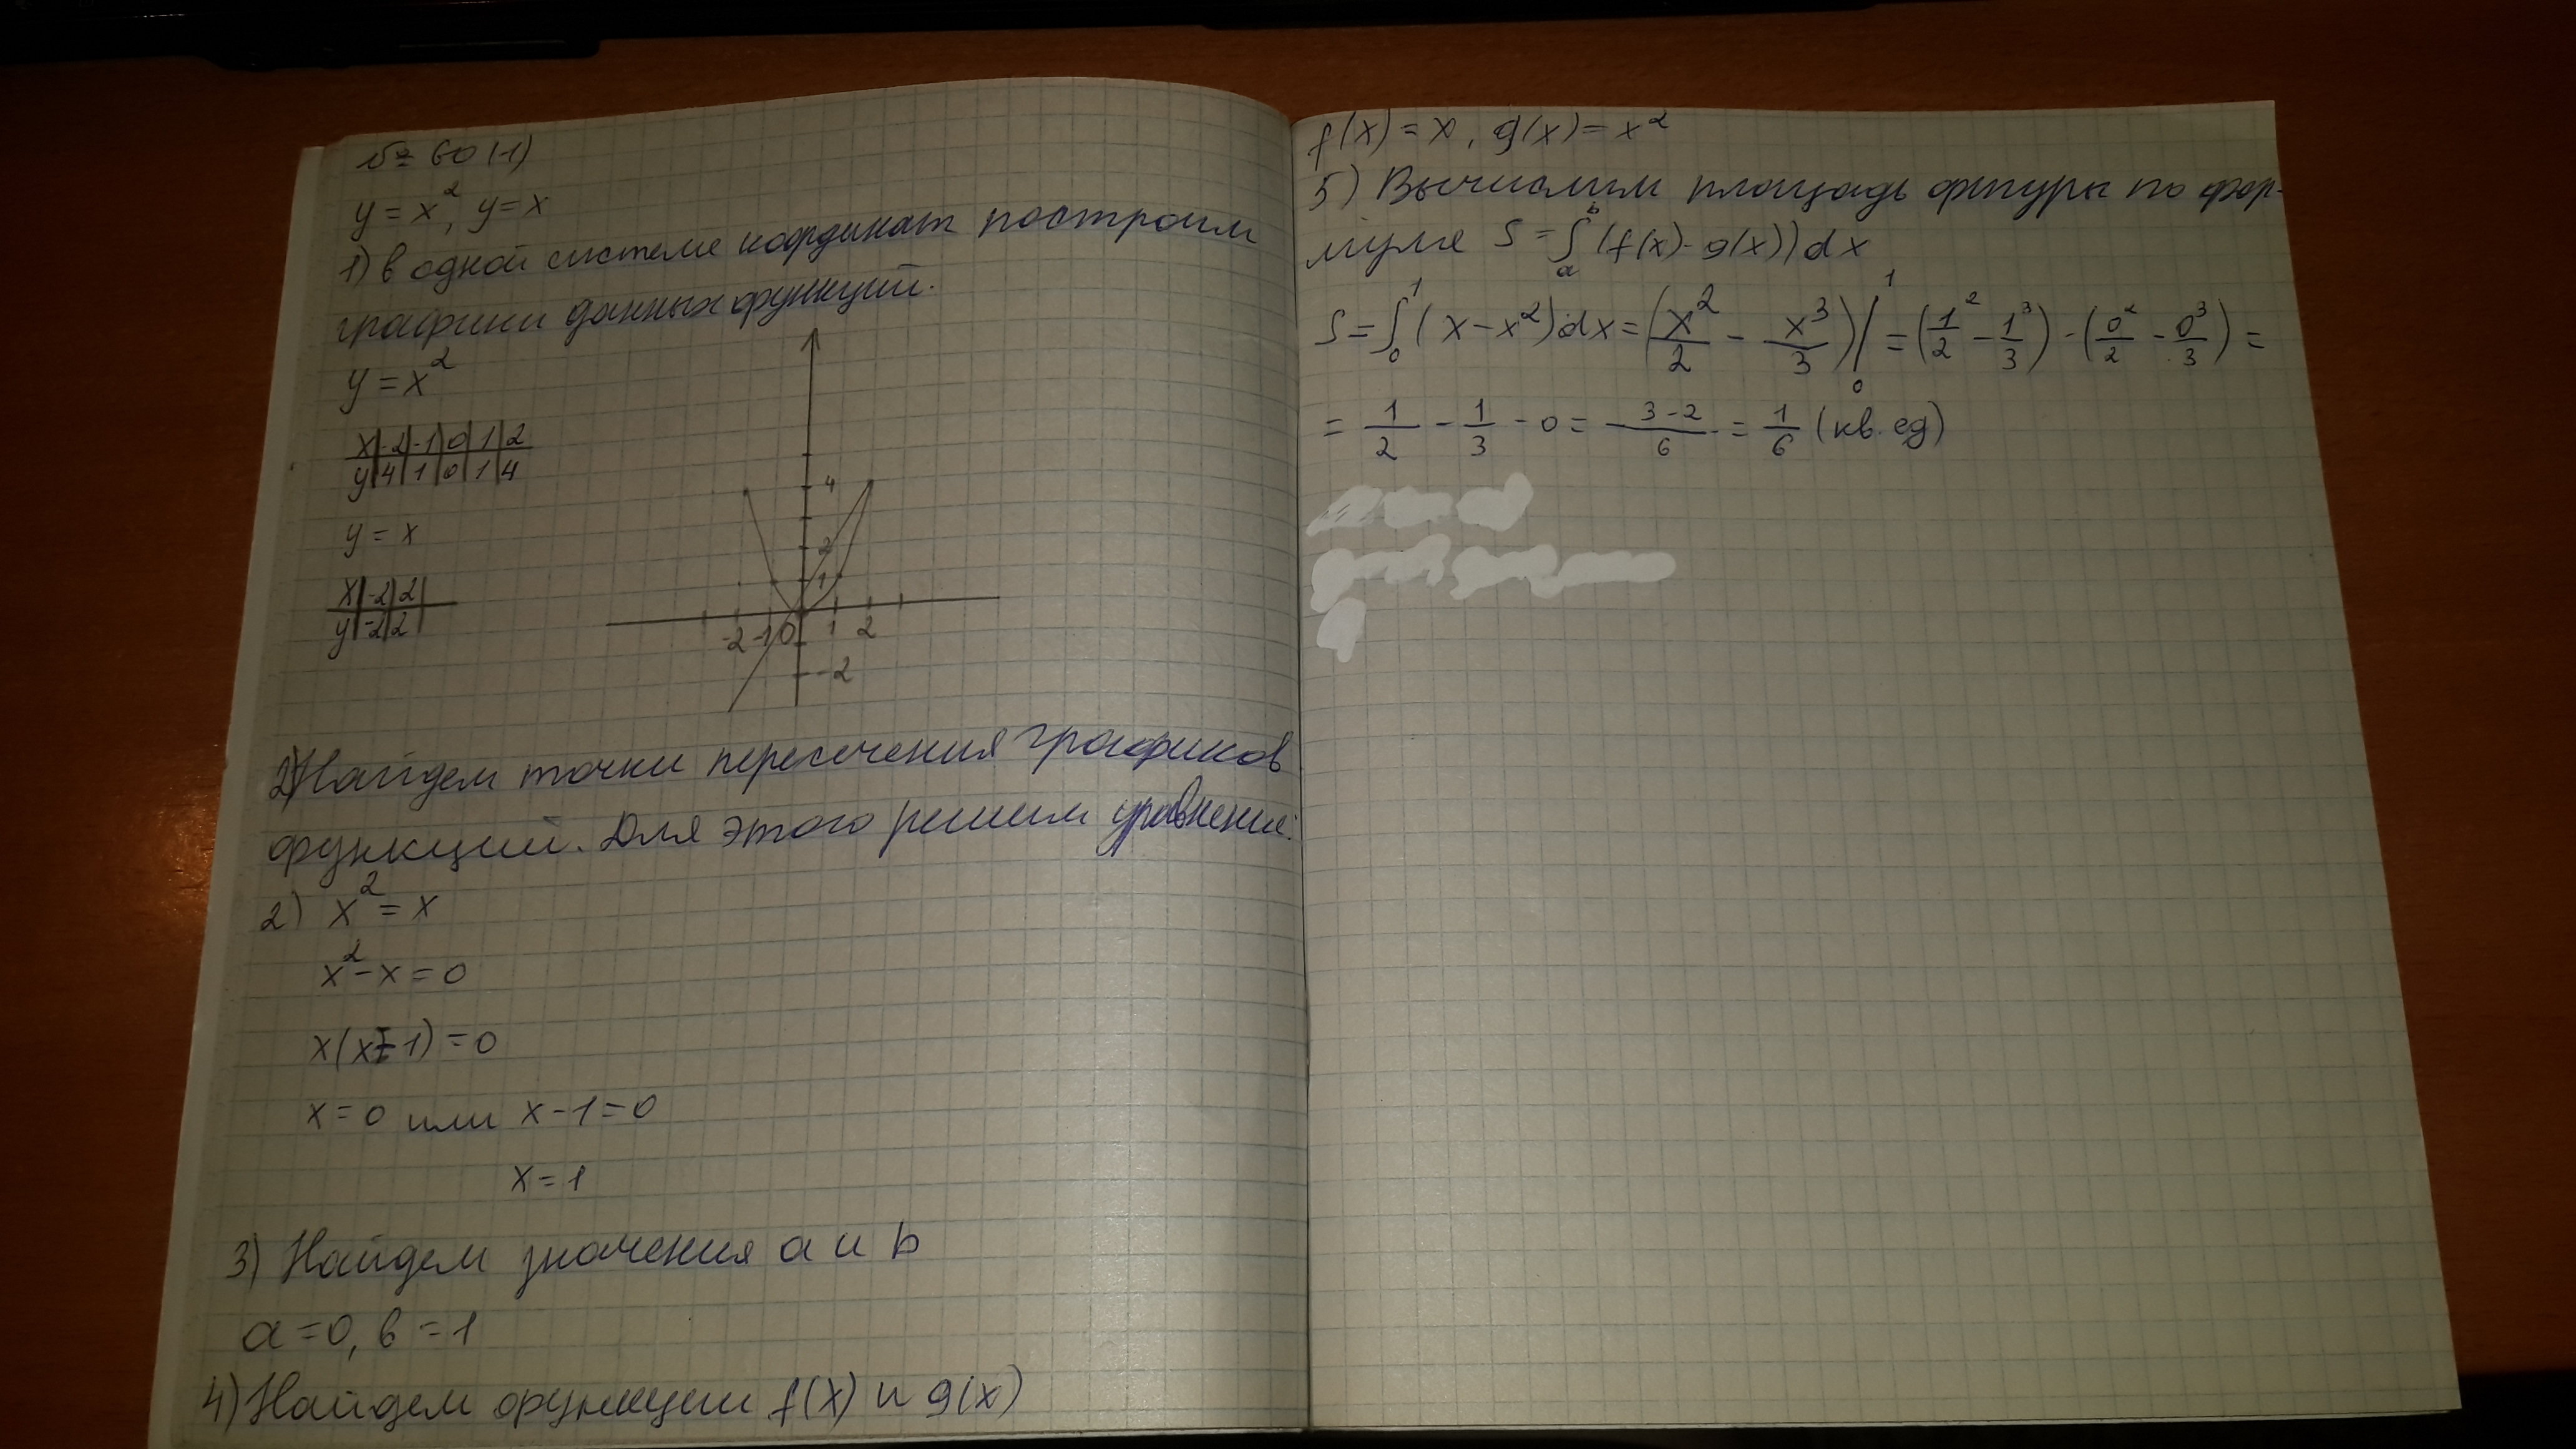 № 60 (1)
y = x², y = x
1) в одной системе координат построим
графики данных функций.
y = x²
x | -2 | -1 | 0 | 1 | 2
y | 4 | 1 | 0 | 1 | 4
y = x
x | -2 | 2
y | -2 | 2
4
2
1
-2 -1 0 1 2
-2
2) Найдем точки пересечения графиков
функций. Для этого решим уравнение:
2) x² = x
x² - x = 0
x(x - 1) = 0
x = 0 или x - 1 = 0
x = 1
3) Найдем значения a и b
a = 0, b = 1
4) Найдем функции f(x) и g(x)
f(x) = x, g(x) = x²
5) Вычислим площадь фигуры по фор-
муле S = ∫ₐᵇ (f(x) - g(x)) dx
S = ∫₀¹ (x - x²) dx = (x²/2 - x³/3) |₀¹ = (1²/2 - 1³/3) - (0²/2 - 0³/3) =
= 1/2 - 1/3 - 0 = (3-2)/6 = 1/6 (кв. ед)